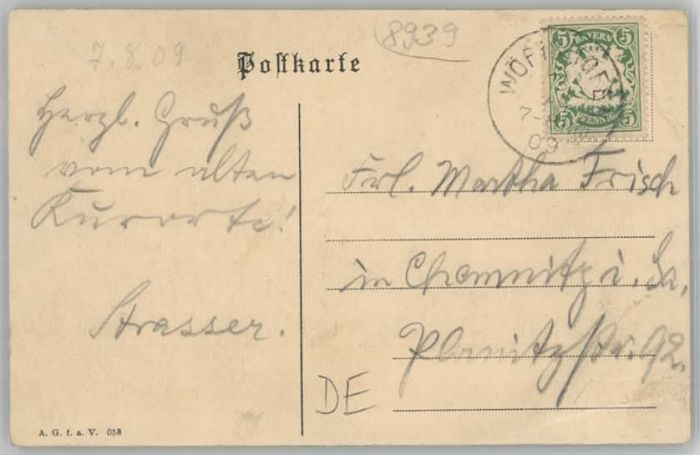 7.8.09
8939
Postkarte
5 BAYERN 5
5 PFENNIG 5
WÖRISHOFEN
7
09
Herzl. Gruß
vom alten
Kurorte!
Strasser.
Frl. Martha Frisch
in Chemnitz i. Sa.
Planitzstr. 92.
DE
A. G. f. a. V. 058